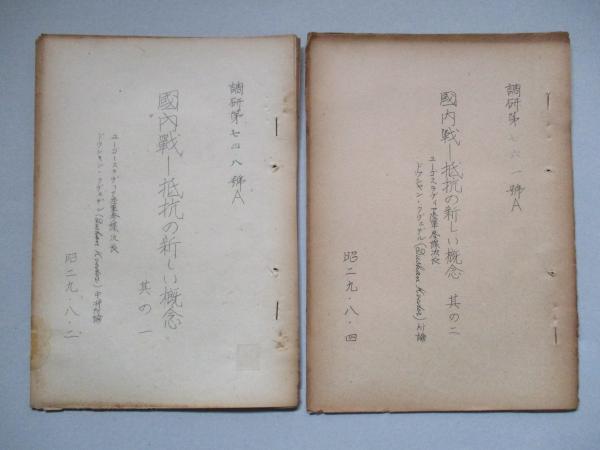 調研第七四八號A
國內戰―抵抗の新しい概念
其の一
ユーゴースラヴィア陸軍参謀次長
ドゥシャン・クヴェデル(Dushan Kveder)中将所論
昭二九・八・二
調研第七六一號A
國内戦―抵抗の新しい概念 其の二
ユーゴスラヴィア陸軍参謀次長
ドゥシャン・クヴェデル(Dushan Kveder)所論
昭二九・八・四